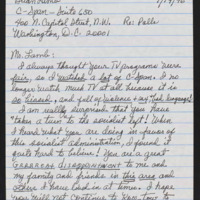 Brian Lamb
C-Span - Suite 650
400 N. Capitol Street, N.W. Re: Polls
Washington, D.C. 20001
Mr. Lamb:
I always thought your TV programs were
fair, so I watched a lot of C-Span. I no
longer watch much TV at all because it is
so biased, and full of violence +
I am really surprised that you have
"taken a turn" to the socialist left! When
I heard what you are doing in favor of
this socialist administration, I found it
quite hard to believe! You are a giant
DISAPPOINTMENT to me and
my family and friends in this area and
others I have been in at times. I hope
you will not continue to